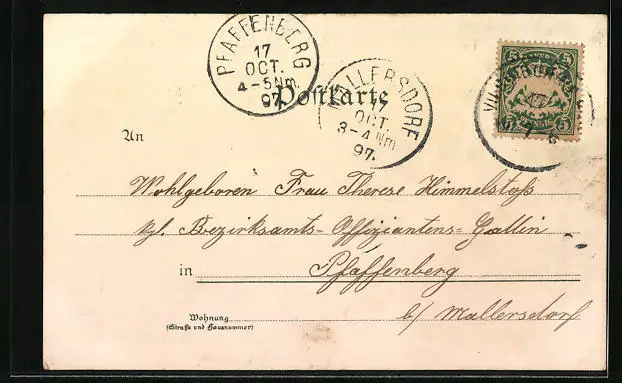 PFAFFENBERG
17
OCT.
4-5Nm.
97.
Postkarte
MALLERSDORF
17
OCT.
3-4Nm
97.
5 5
PFENNIG
An
Wohlgeboren Frau Therese Himmelstoß
kgl. Bezirksamts-Offiziantens-Gattin
in Pfaffenberg
b/ Mallersdorf
Wohnung
(Straße und Hausnummer)